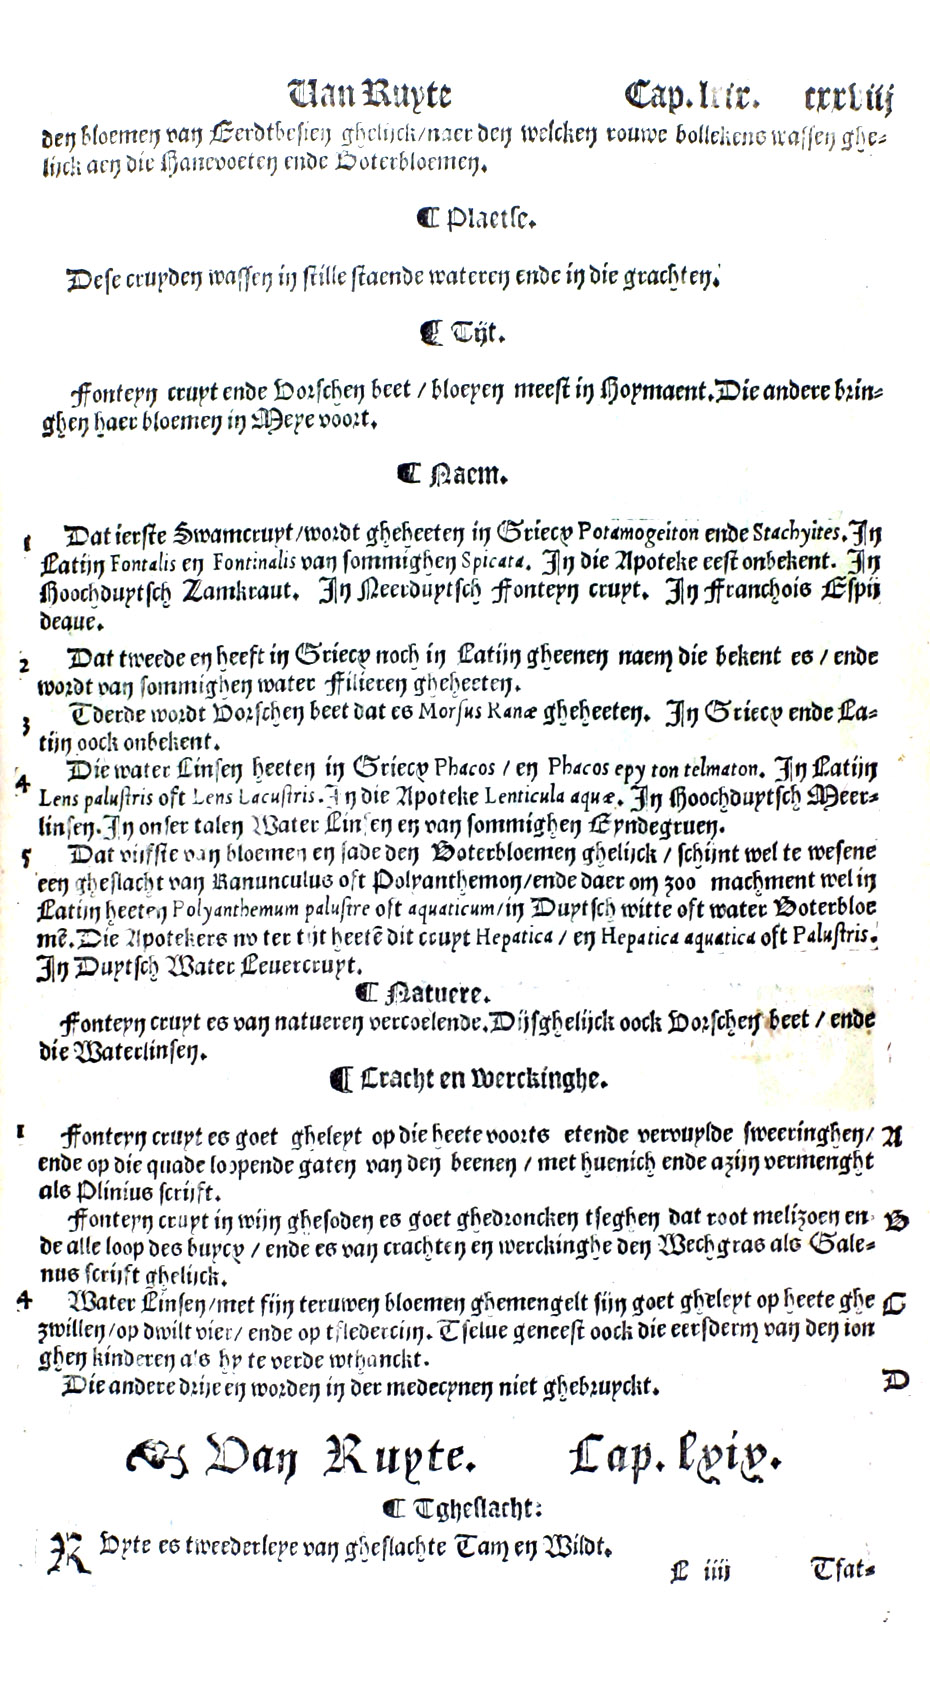 Van Ruyte Cap. lxix. cxxviij
den bloemen van Eerdtbesien ghelijck/naer den welcken rouwe bollekens wassen ghe⸗
lijck aen die Hanevoeten ende Boterbloemen.
¶ Plaetse.
Dese cruyden wassen in stille staende wateren ende in die grachten.
¶ Tijt.
Fonteyn cruyt ende Vorschen beet / bloeyen meest in Hoymaent. Die andere brin⸗
ghen haer bloemen in Meye voort.
¶ Naem.
1 Dat ierste Swamcruyt/wordt gheheeten in Griecx Potamogeiton ende Stachyites. In
Latijn Fontalis en Fontinalis van sommighen Spicata. In die Apoteke eest onbekent. In
Hoochduytsch Zamkraut. In Neerduytsch Fonteyn cruyt. In Franchois Espij
deaue.
2 Dat tweede en heeft in Griecx noch in Latijn gheenen naem die bekent es / ende
wordt van sommighen water Filieren gheheeten.
3 Tderde wordt Vorschen beet dat es Morsus Ranæ gheheeten. In Griecx ende La⸗
tijn oock onbekent.
4 Die water Linsen heeten in Griecx Phacos / en Phacos epy ton telmaton. In Latijn
Lens palustris oft Lens Lacustris. In die Apoteke Lenticula aquæ. In Hoochduytsch Meer⸗
linsen. In onser talen Water Linsen en van sommighen Eyndegruen.
5 Dat vijfste van bloemen en sade den Boterbloemen ghelijck / schijnt wel te wesene
een gheslacht van Ranunculus oft Polyanthemon/ende daer om zoo machment wel in
Latijn heeten Polyanthemum palustre oft aquaticum/in Duytsch witte oft water Boterbloe
mē. Die Apotekers nv ter tijt heetē dit cruyt Hepatica / en Hepatica aquatica oft Palustris.
In Duytsch Water Leuercruyt.
¶ Natuere.
Fonteyn cruyt es van natueren vercoelende. Dijsghelijck oock Vorschen beet / ende
die Waterlinsen.
¶ Cracht en Werckinghe.
1 Fonteyn cruyt es goet gheleyt op die heete voorts etende vervuylde sweeringhen/ A
ende op die quade loopende gaten van den beenen / met huenich ende azijn vermenght
als Plinius scrijft.
Fonteyn cruyt in wijn ghesoden es goet ghedroncken tseghen dat root melizoen en B
de alle loop des buycx / ende es van crachten en werckinghe den Wechgras als Gale⸗
nus scrijft ghelijck.
4 Water Linsen/met fijn teruwen bloemen ghemengelt sijn goet gheleyt op heete ghe C
zwillen/op dwilt vier/ ende op tfledercijn. Tselue geneest oock die eersderm van den ion
ghen kinderen als hy te verde wthanckt.
Die andere drije en worden in der medecynen niet ghebruyckt. D
Van Ruyte. Cap. lxix.
¶ Tgheslacht.
RVyte es tweederleye van gheslachte Tam en Wildt.
L iiij Tsat⸗